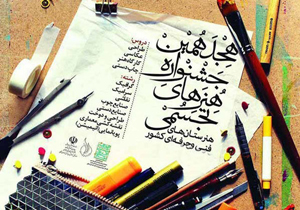 هجدهمین
جشنواره
هنرهای
تجسمی
هنرستان‌های
فنی و حرفه‌ای کشور
دروس:
طراحی
عکاسی
کارگاه هنر
چاپ دستی
رشته:
گرافیک
سرامیک
نقاشی
صنایع چوب
صنایع دستی
طراحی و دوخت
نقشه‌کشی معماری
پویانمایی (انیمیشن)